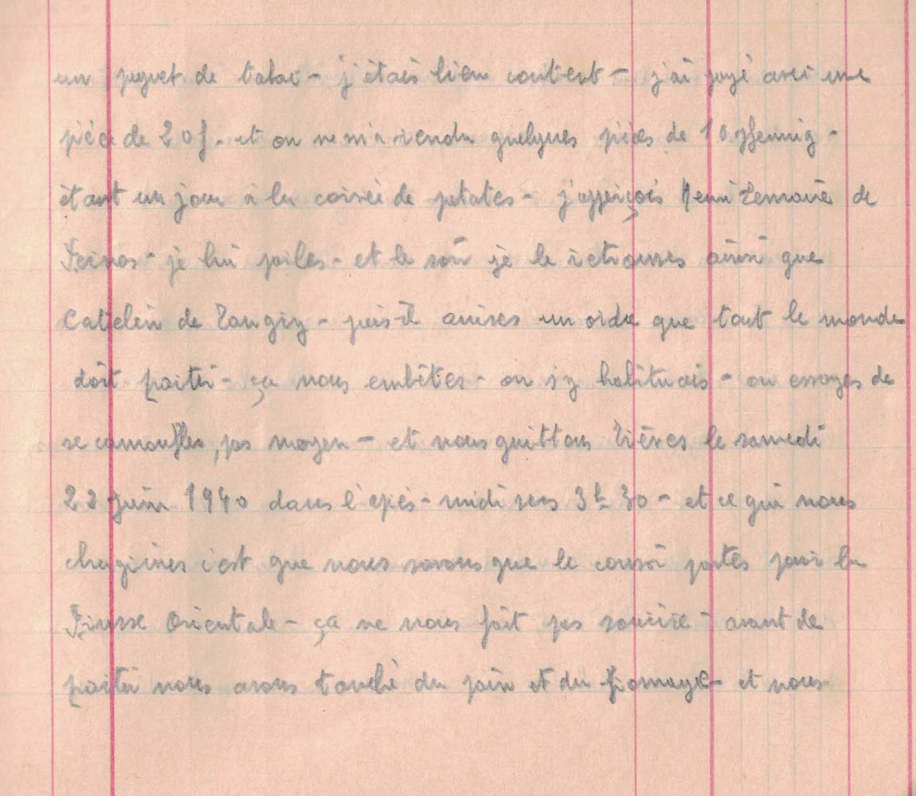 un paquet de tabac - j'étais bien content - j'ai payé avec une
pièce de 20f. et on ne m'a rendu quelques pièces de 10 pfennig -
étant un jour à la corvée de patates - j'apperçois Henri Lemaire de
- je lui parles - et le soir je le retrouves ainsi que
Catelein de Tangry - puis il arrives un ordre que tout le monde
doit partir - ça nous embêtes - on s'y habituais - on essayes de
se camoufler, pas moyen - et nous quittons Trèves le samedi
22 Juin 1940 dans l'après-midi vers 3h 30 - et ce qui nous
chagrines c'est que nous savons que le convoi partes pour la
Prusse Orientale - ça ne nous fait pas sourire - avant de
partir nous avons touché du pain et du fromage - et nous